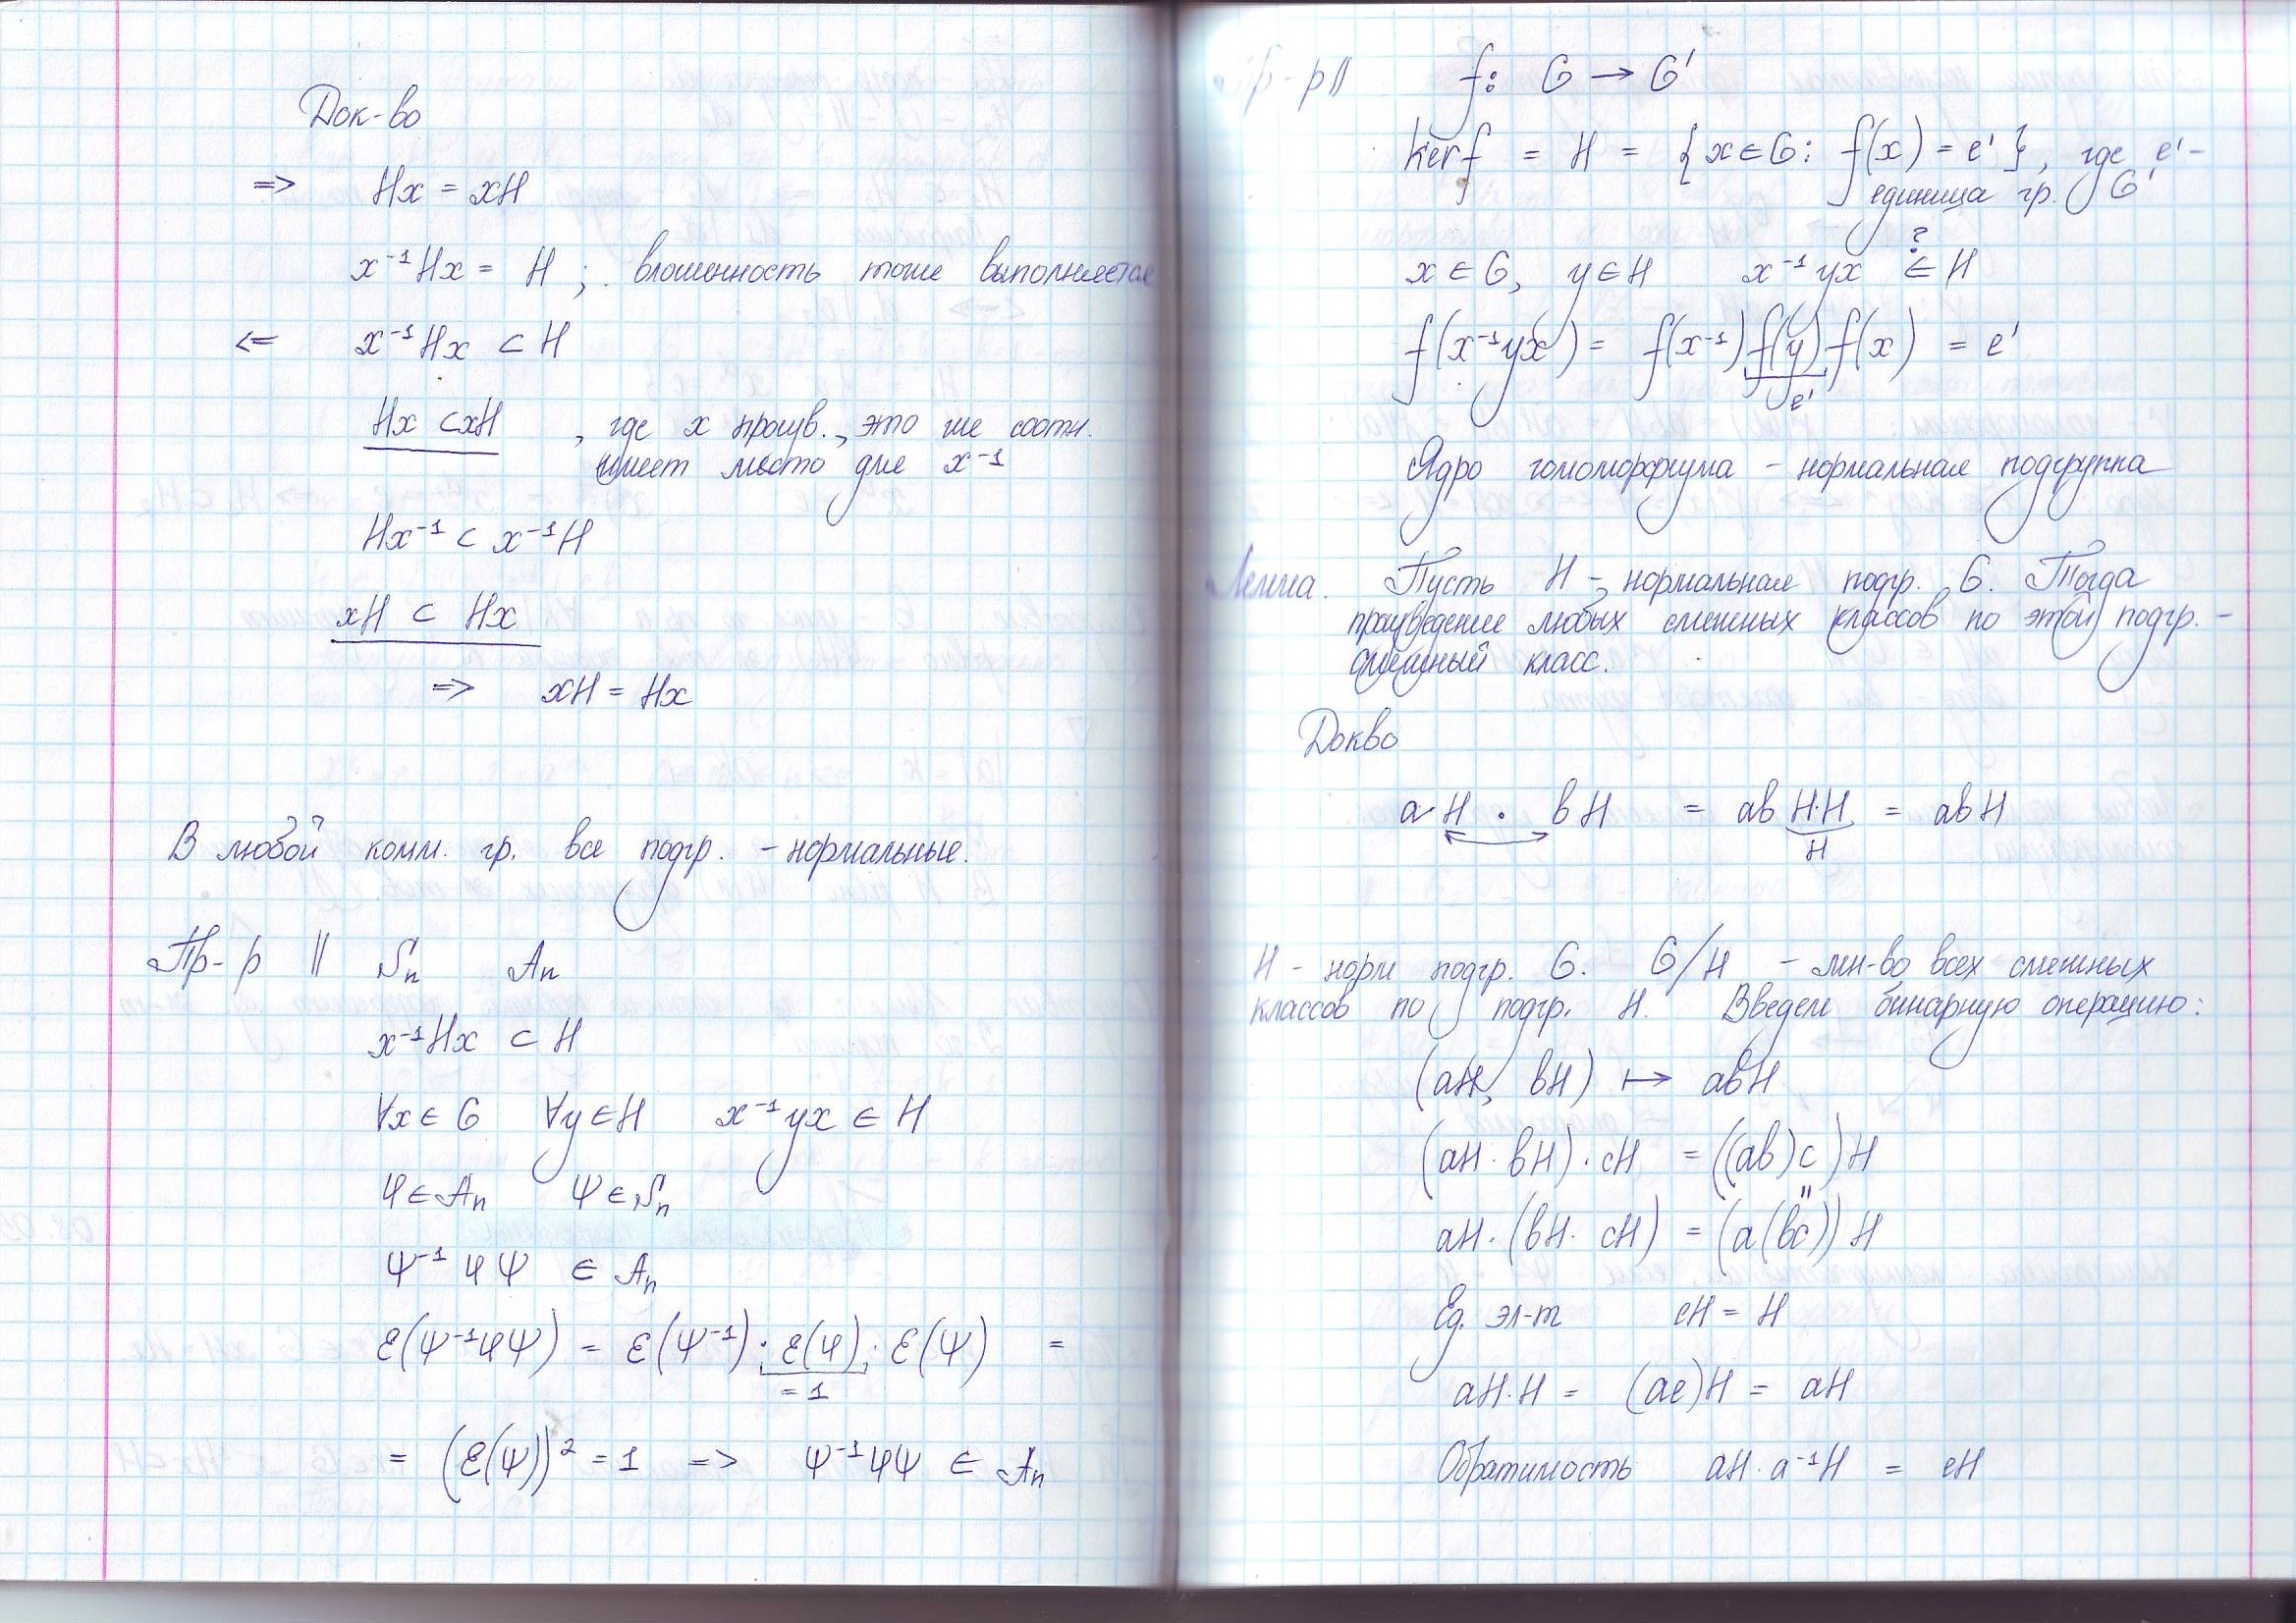 Док-во
=> Hx = xH
x⁻¹Hx = H ; вложенность тоже выполняется
<= x⁻¹Hx ⊂ H
Hx ⊂ xH , где x произв., это же соотн.
имеет место для x⁻¹
Hx⁻¹ ⊂ x⁻¹H
xH ⊂ Hx
=> xH = Hx
В любой комм. гр. все подгр. - нормальные.
Пр-р || Sn An
x⁻¹Hx ⊂ H
∀x ∈ G ∀y ∈ H x⁻¹yx ∈ H
φ ∈ An ψ ∈ Sn
ψ⁻¹φψ ∈ An
ε(ψ⁻¹φψ) = ε(ψ⁻¹) · ε(φ) · ε(ψ) =
= 1
= (ε(ψ))² = 1 => ψ⁻¹φψ ∈ An
Пр-р || f: G → G'
Ker f = H = {x ∈ G: f(x) = e'}, где e' -
единица гр. G'
?
x ∈ G, y ∈ H x⁻¹yx ∈ H
f(x⁻¹yx) = f(x⁻¹) f(y) f(x) = e'
e'
Ядро гомоморфизма - нормальная подгруппа
Лемма. Пусть H - нормальная подгр. G. Тогда
произведение любых смежных классов по этой подгр. -
смежный класс.
Докво
aH · bH = ab H·H = abH
H
H - норм подгр. G. G/H - мн-во всех смежных
классов по подгр. H. Введем бинарную операцию:
(aH, bH) ↦ abH
(aH · bH) · cH = ((ab)c)H
"
aH · (bH · cH) = (a(bc))H
Ед. эл-т eH = H
aH·H = (ae)H = aH
Обратимость aH·a⁻¹H = eH